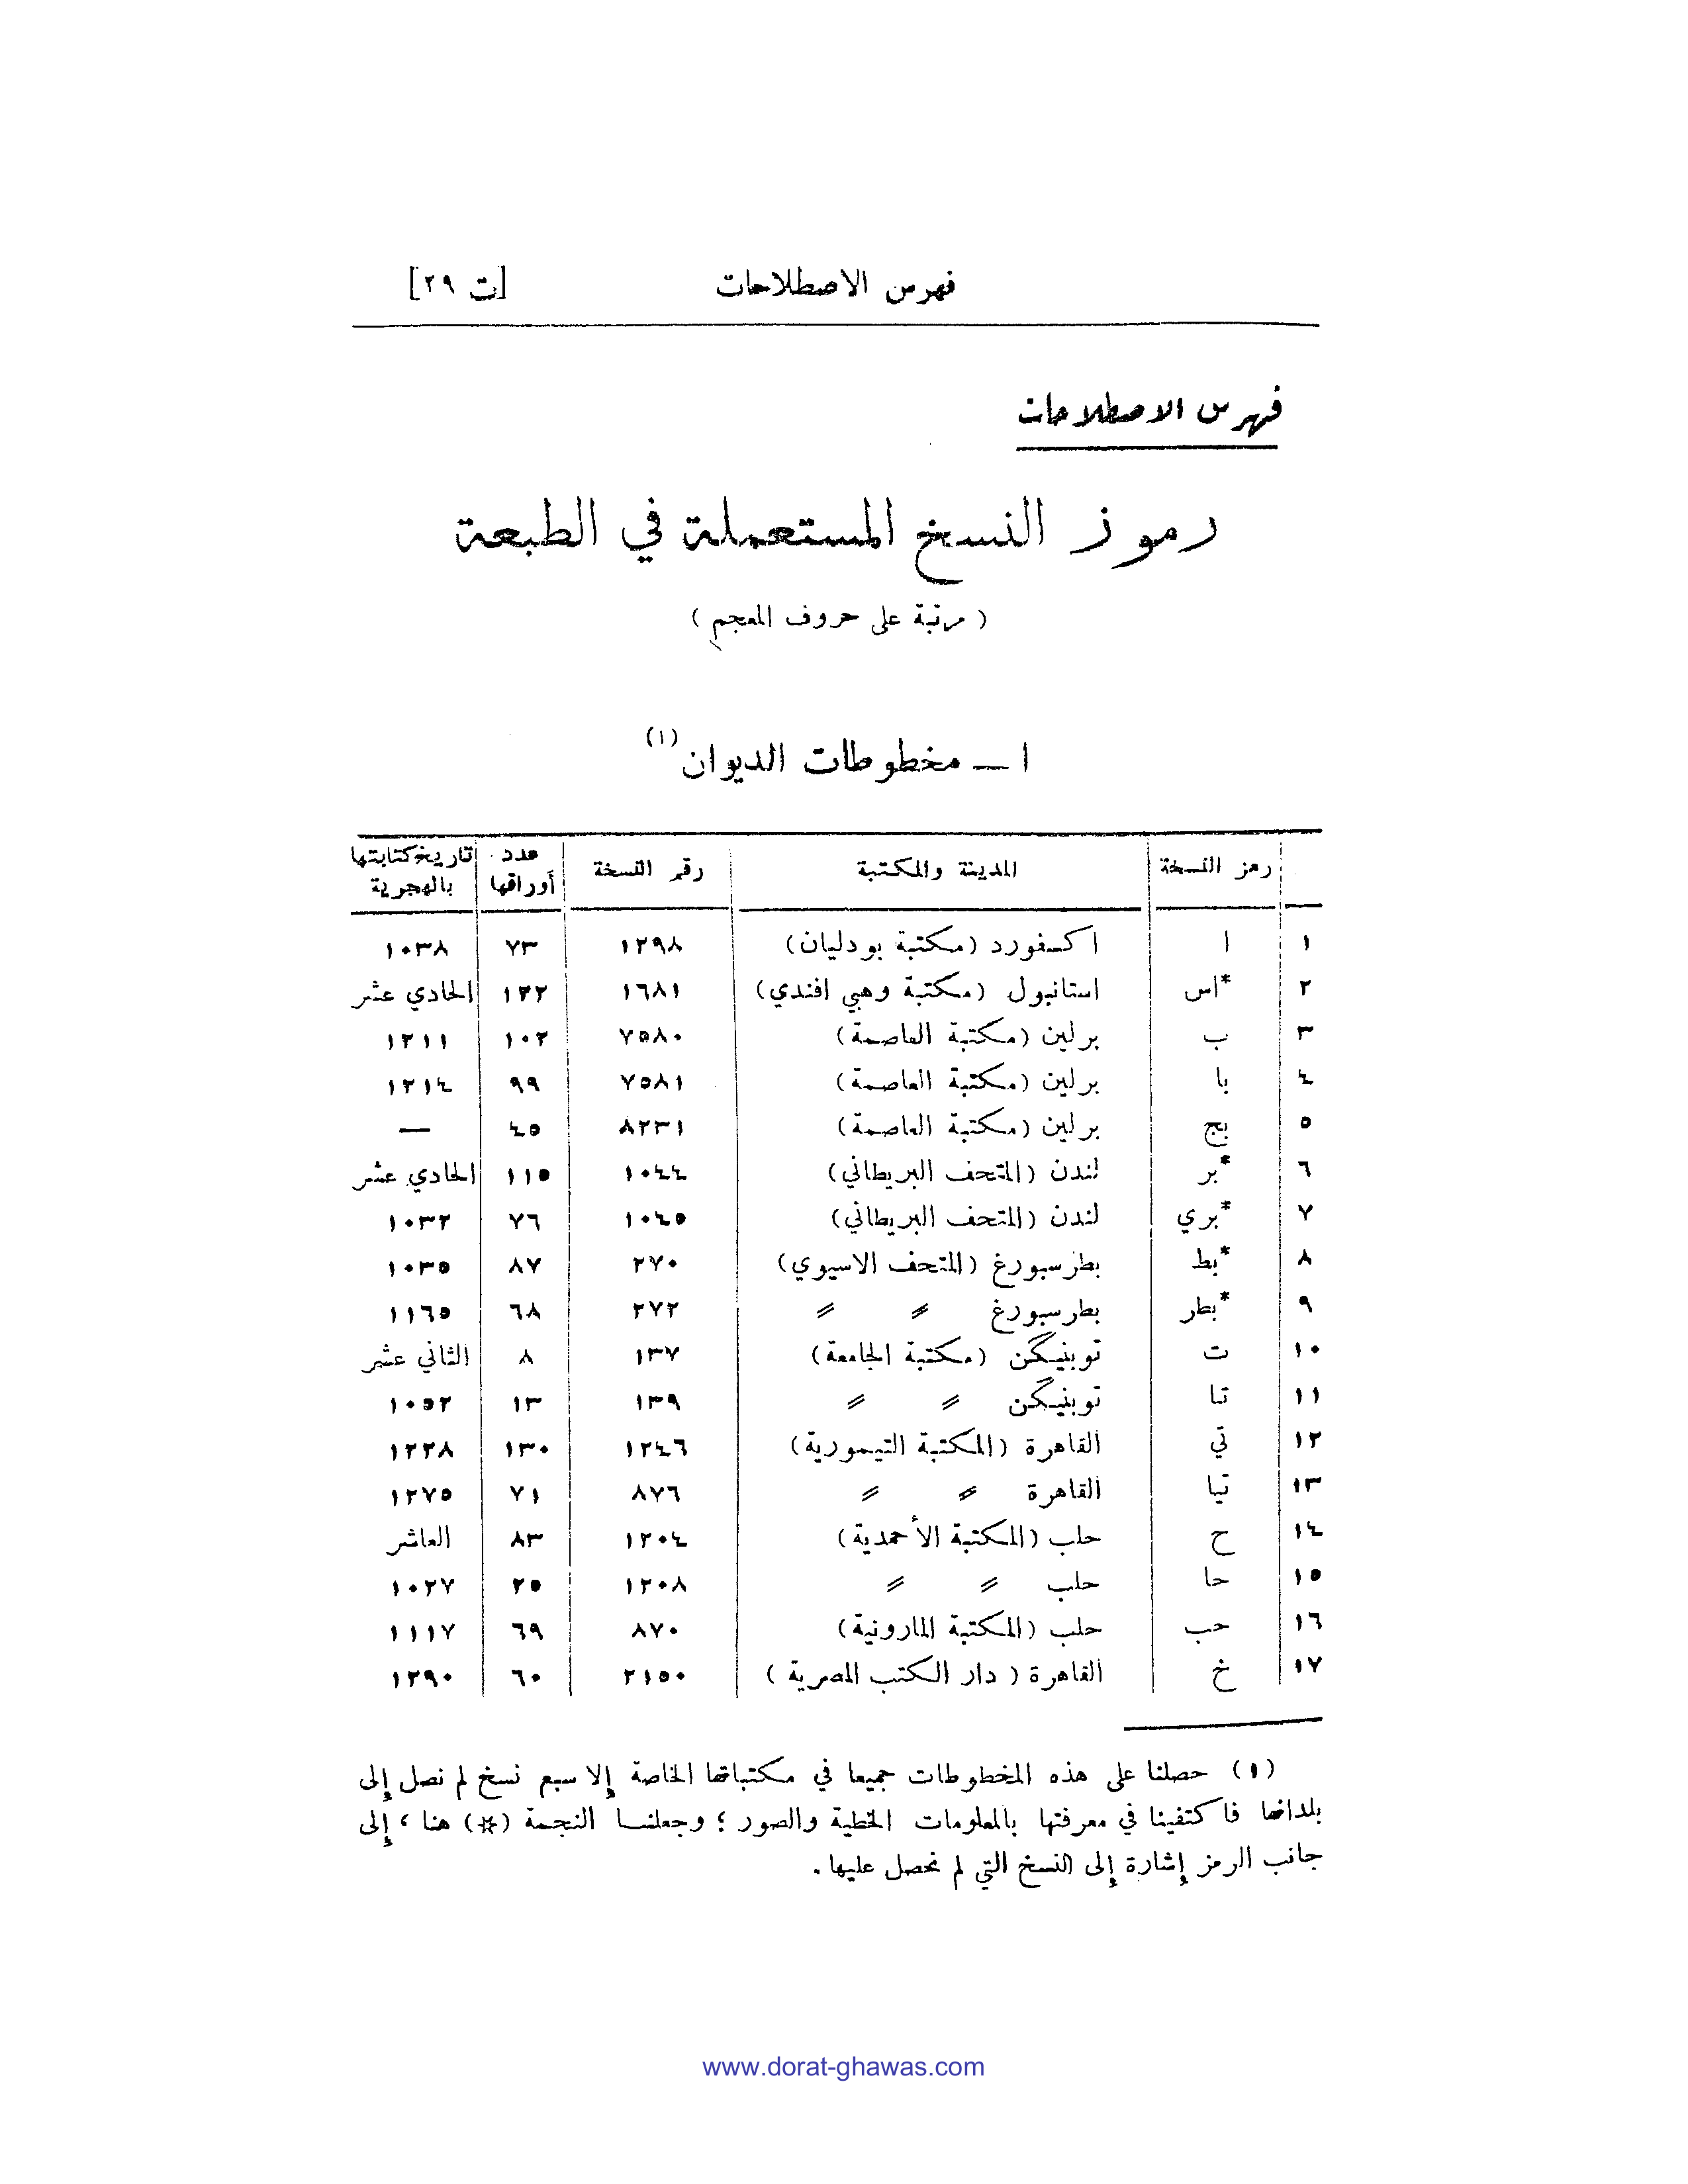 فهرس الاصطلاحات [ت ٢٩]
فهرس الاصطلاحات
رموز النسخ المستعملة في الطبعة
( مرتبة على حروف المعجم )
١ — مخطوطات الديوان (١)
رمز النسخة | المدينة والمكتبة | رقم النسخة | عدد أوراقها | تاريخ كتابتها بالهجرية
١ | ا | اكسفورد (مكتبة بودليان) | ١٢٩٨ | ٧٣ | ١٠٣٨
٢ | *اس | استانبول (مكتبة وهبي افندي) | ١٦٨١ | ١٢٢ | الحادي عشر
٣ | ب | برلين (مكتبة العاصمة) | ٧٥٨٠ | ١٠٢ | ١٢١١
٤ | با | برلين (مكتبة العاصمة) | ٧٥٨١ | ٩٩ | ١٢١٤
٥ | بج | برلين (مكتبة العاصمة) | ٨٢٣١ | ٤٥ | —
٦ | *بر | لندن (المتحف البريطاني) | ١٠٤٤ | ١١٥ | الحادي عشر
٧ | *بري | لندن (المتحف البريطاني) | ١٠٤٥ | ٧٦ | ١٠٣٢
٨ | *بط | بطرسبورغ (المتحف الاسيوي) | ٢٧٠ | ٨٧ | ١٠٣٥
٩ | *بطر | بطرسبورغ 〃 〃 | ٢٧٢ | ٦٨ | ١١٦٥
١٠ | ت | توبنيگن (مكتبة الجامعة) | ١٣٧ | ٨ | الثاني عشر
١١ | تا | توبنيگن 〃 〃 | ١٣٩ | ١٣ | ١٠٥٢
١٢ | تي | القاهرة (المكتبة التيمورية) | ١٢٤٦ | ١٣٠ | ١٢٢٨
١٣ | تيا | القاهرة 〃 〃 | ٨٧٦ | ٧١ | ١٢٧٥
١٤ | ح | حلب (المكتبة الأحمدية) | ١٢٠٤ | ٨٣ | العاشر
١٥ | حا | حلب 〃 〃 | ١٢٠٨ | ٢٥ | ١٠٢٧
١٦ | حب | حلب (المكتبة المارونية) | ٨٧٠ | ٦٩ | ١١١٧
١٧ | خ | القاهرة ( دار الكتب المصرية ) | ٢١٥٠ | ٦٠ | ١٢٩٠
(١) حصلنا على هذه المخطوطات جميعا في مكتباتها الخاصة إلا سبع نسخ لم نصل إلى
بلدانها فاكتفينا في معرفتها بالمعلومات الخطية والصور ؛ وجعلنا النجمة (*) هنا ، إلى
جانب الرمز إشارة إلى النسخ التي لم نحصل عليها .
www.dorat-ghawas.com